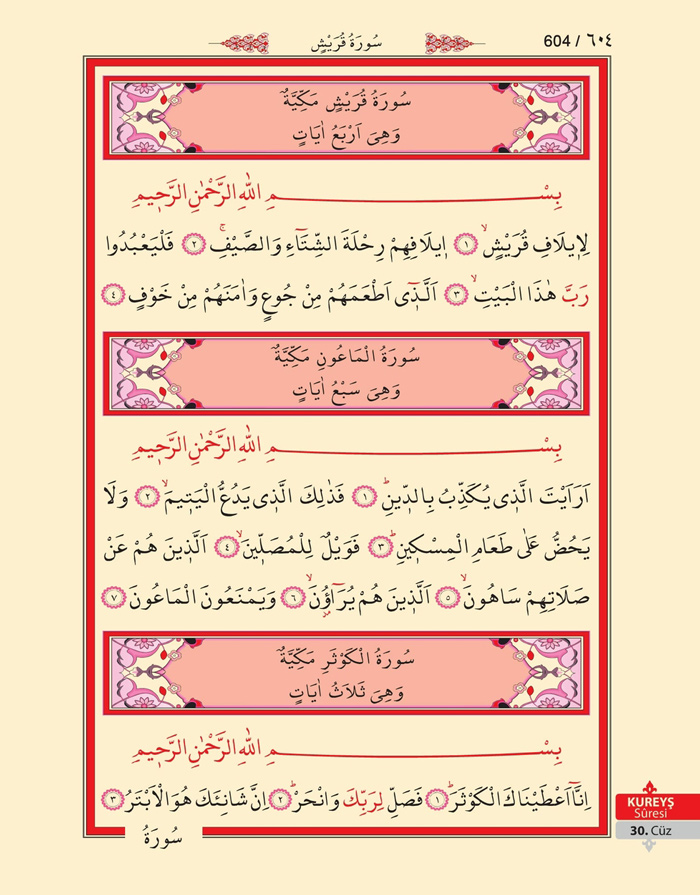 604 / ٦٠٤
سُورَةُ قُرَيْشٍ
سُورَةُ قُرَيْشٍ مَكِّيَّةٌ
وَهِىَ اَرْبَعُ اٰيَاتٍ
بِسْمِ اللّٰهِ الرَّحْمٰنِ الرَّحٖيمِ
لِاٖيلَافِ قُرَيْشٍۙ ﴿١﴾ اٖيلَافِهِمْ رِحْلَةَ الشِّتَٓاءِ وَالصَّيْفِۚ ﴿٢﴾ فَلْيَعْبُدُوا
رَبَّ هٰذَا الْبَيْتِۙ ﴿٣﴾ اَلَّذٖٓى اَطْعَمَهُمْ مِنْ جُوعٍ وَاٰمَنَهُمْ مِنْ خَوْفٍ ﴿٤﴾
سُورَةُ الْمَاعُونِ مَكِّيَّةٌ
وَهِىَ سَبْعُ اٰيَاتٍ
بِسْمِ اللّٰهِ الرَّحْمٰنِ الرَّحٖيمِ
اَرَاَيْتَ الَّذٖى يُكَذِّبُ بِالدّٖينِؕ ﴿١﴾ فَذٰلِكَ الَّذٖى يَدُعُّ الْيَتٖيمَۙ ﴿٢﴾ وَلَا
يَحُضُّ عَلٰى طَعَامِ الْمِسْكٖينِؕ ﴿٣﴾ فَوَيْلٌ لِلْمُصَلّٖينَۙ ﴿٤﴾ اَلَّذٖينَ هُمْ عَنْ
صَلَاتِهِمْ سَاهُونَۙ ﴿٥﴾ اَلَّذٖينَ هُمْ يُرَٓاؤُنَۙ ﴿٦﴾ وَيَمْنَعُونَ الْمَاعُونَ ﴿٧﴾
سُورَةُ الْكَوْثَرِ مَكِّيَّةٌ
وَهِىَ ثَلَاثُ اٰيَاتٍ
بِسْمِ اللّٰهِ الرَّحْمٰنِ الرَّحٖيمِ
اِنَّٓا اَعْطَيْنَاكَ الْكَوْثَرَؕ ﴿١﴾ فَصَلِّ لِرَبِّكَ وَانْحَرْؕ ﴿٢﴾ اِنَّ شَانِئَكَ هُوَ الْاَبْتَرُ ﴿٣﴾
سُورَةُ
KUREYŞ
Sûresi
30. Cüz